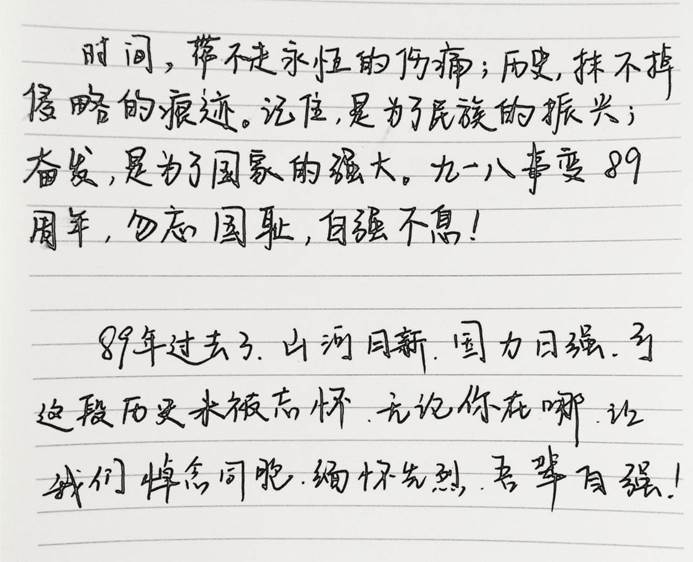 时间，带不走永恒的伤痛；历史，抹不掉
侵略的痕迹。记住，是为了民族的振兴；
奋发，是为了国家的强大。九一八事变89
周年，勿忘国耻，自强不息！
89年过去了.山河日新.国力日强.
这段历史未被忘怀.无论你在哪.让
我们悼念同胞.缅怀先烈.吾辈自强！